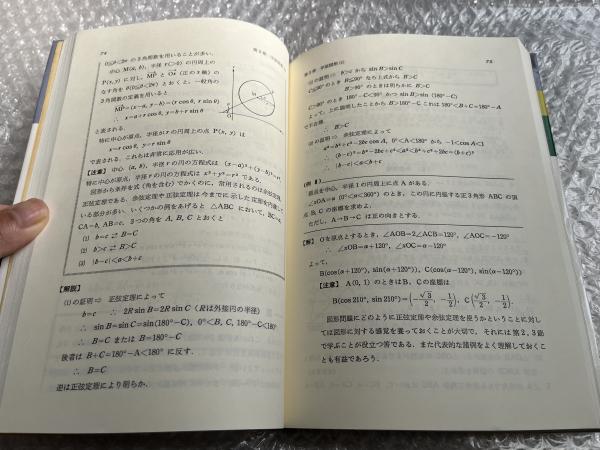 74
0≦θ<2π の3角関数を用いることが多い.
中心 M(a, b), 半径 r(>0) の円周上の
P(x, y) に対し, MP と Ox (正の x 軸) の
なす角を θ(0≦θ<2π) とおくと, 一般角の
3角関数の定義を用いると
MP=(x-a, y-b)=(r cos θ, r sin θ)
∴ x=a+r cos θ, y=b+r sin θ
と表される.
特に中心が原点, 半径が r の円周上の点 P(x, y) は
x=r cos θ, y=r sin θ
で表される. これらは非常に応用が広い.
【注意】 中心 (a, b), 半径 r の円の方程式は (x-a)²+(y-b)²=r²
特に中心が原点, 半径 r の円の方程式は x²+y²=r² である.
図形から条件を式 (角を含む) でかくのに, 常用されるのは余弦定理,
正弦定理である. 余弦定理や正弦定理は今までに示した定理を内蔵して
いる部分が多い. いくつかの例をあげると △ABC において, BC=a,
CA=b, AB=c, 3つの角を A, B, C とおくと
(1) b=c ⇄ B=C
(2) b>c ⇄ B>C
(3) |b-c|<a<b+c
【解説】
(1) の証明 ⇒ 正弦定理によって
b=c ∴ 2R sin B=2R sin C (R は外接円の半径)
∴ sin B=sin C=sin(180°-C), 0°<B, C, 180°-C<180°
∴ B=C または B=180°-C
後者は B+C=180°-A<180° に反す.
∴ B=C
逆は正弦定理により明らか.
75
(2) の証明 ⇒ b>c から sin B>sin C
よって, 上に説明したことから B>180°-C これは 180°<B+C=180°-A
で不合理.
∴ B>C
(3) の証明 ⇒ 余弦定理によって
a²=b²+c²-2bc cos A, 0°<A<180° から -1<cos A<1
∴ (b-c)²=b²-2bc+c²<a²<b²+c²+2bc=(b+c)²
∴ |b-c|<a<b+c
原点を中心, 半径 1 の円周上に点 A がある.
∠xOA=α (0°≦α<360°) のとき, この円に内接する正3角形 ABC の頂
点 B, C の座標を求めよ.
ただし, A→B→C は正の向きとする.
【解】 O を原点とするとき, ∠AOB=2∠ACB=120°, ∠AOC=-120°
∴ ∠xOB=α+120°, ∠xOC=α-120°
よって,
B(cos(α+120°), sin(α+120°)), C(cos(α-120°), sin(α-120°))
【注意】 A(0, 1) のときは B, C の座標は
B(cos 210°, sin 210°)=(-√3/2, -1/2), C(√3/2, -1/2).
図形問題にどのように正弦定理や余弦定理を使うかということに対し
ては図形に対する感覚を養っておくことが大切で, それには第 2, 3 節
で学ぶことが役立つ筈である. また代表的な諸例をよく理解しておくこ
とも有益であろう.